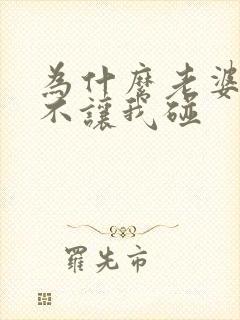 為什麼老婆
不讓我碰
羅先市